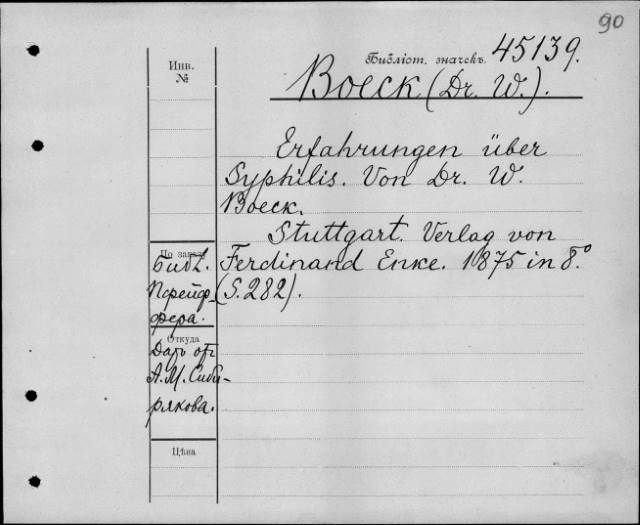 90
Библіот. значекъ. 45139.
Инв.
№
Boeck (Dr. W.).
Erfahrungen über
Syphilis. Von Dr. W.
Boeck.
Stuttgart. Verlag von
Ferdinand Enke. 1875 in 8.°
(S. 282).
По
Библ.
Порейф-
фера.
Откуда
Даръ отъ
А. М. Сиби-
рякова.
Цѣна